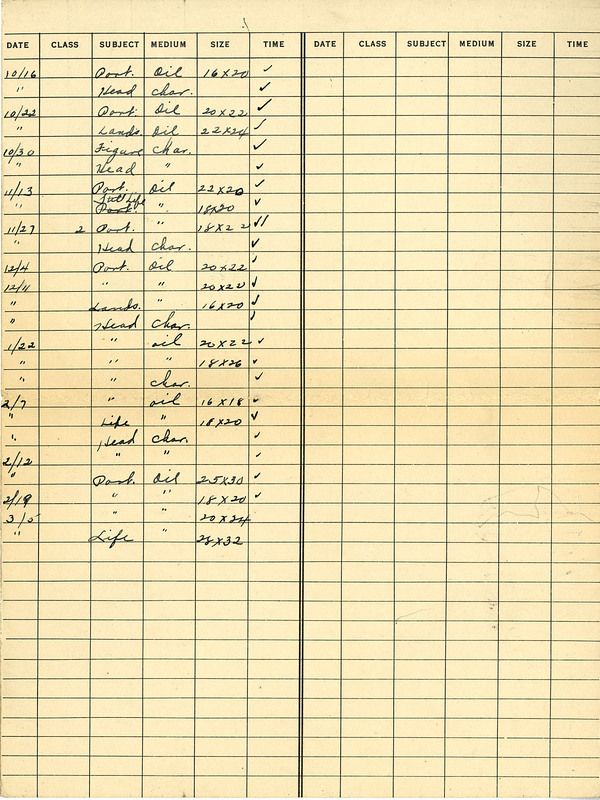 DATE CLASS SUBJECT MEDIUM SIZE TIME DATE CLASS SUBJECT MEDIUM SIZE TIME
10/16 Port. Oil 16 x 20 ✓
" Head char. ✓
10/22 Port. Oil 20 x 22 ✓
" Lands. Oil 22 x 24 ✓
10/30 Figure char. ✓
" Head " ✓
11/13 Port. Oil 22 x 20 ✓
" Full Life Port. " 18 x 20 ✓
11/27 2 Port. " 18 x 22 ✓✓
" Head Char. ✓
12/4 Port. Oil 20 x 22 ✓
12/11 " " 20 x 22 ✓
" Lands. " 16 x 20 ✓
" Head Char. ✓
1/22 " oil 20 x 22 ✓
" " " 18 x 26 ✓
" " char. ✓
2/7 " oil 16 x 18 ✓
" Life " 18 x 20 ✓
" Head Char. ✓
2/12 " " ✓
" Port. Oil 25 x 30 ✓
2/19 " " 18 x 20 ✓
3/5 " " 20 x 24
" Life " 28 x 32